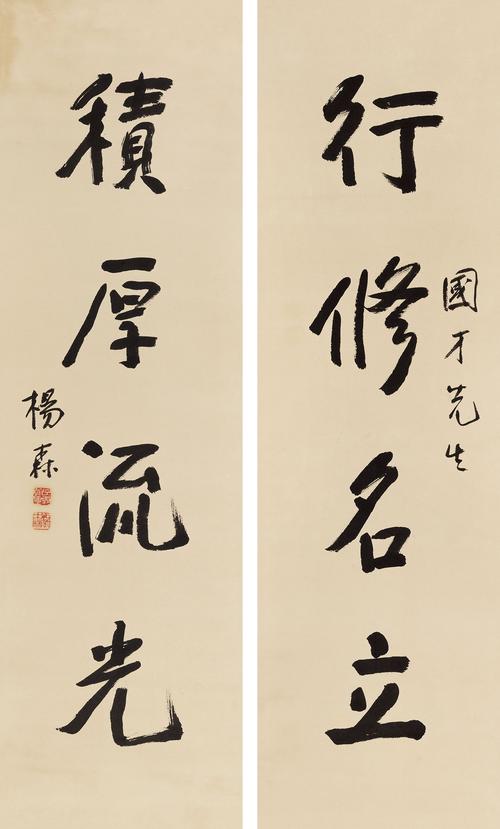 行修名立
國才先生
積厚流光
楊森